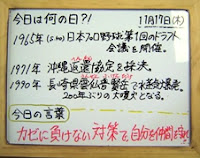 今日は何の日?!
11月17日(木)
1965年(S40)日本プロ野球第1回のドラフト
会議を開催。
1971年 沖縄返還協定を採決。
1990年 長崎県雲仙普賢岳で水蒸気爆発。
200年ぶりの大噴火となる。
今日の言葉
カゼに負けない対策で自分を仲間を